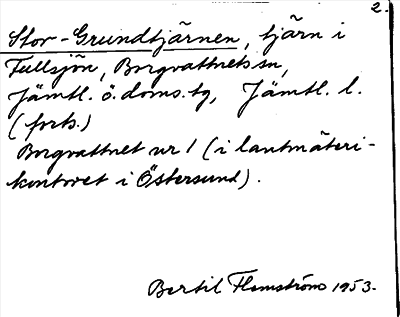 2.
Stor-Grundtjärnen, tjärn i
Fullsjön, Borgvattnets sn,
Jämtl. ö. doms. tg, Jämtl. l.
(forts.)
Borgvattnet nr 1 (i lantmäteri-
kontoret i Östersund).
Bertil Flemström 1953.